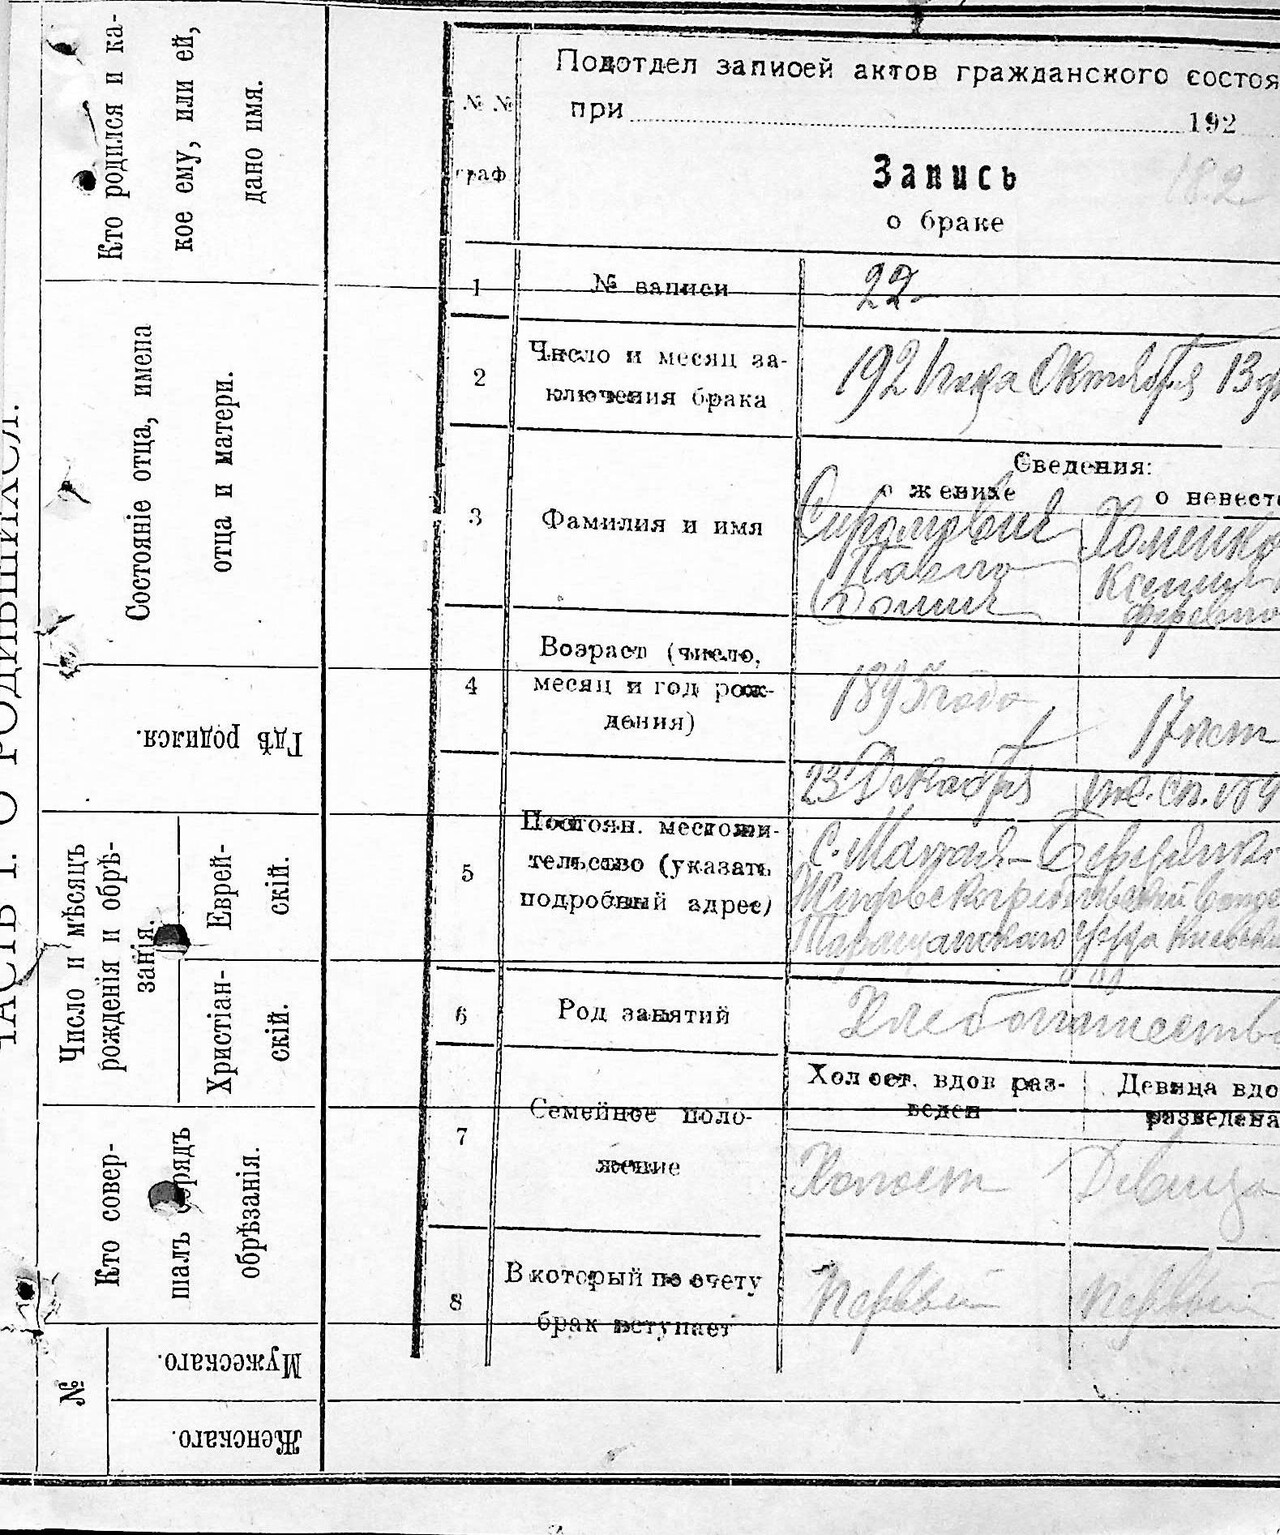 ЧАСТЬ I. О РОДИВШИХСЯ.
Кто родился и ка-
кое ему, или ей,
дано имя.
Состояніе отца, имена
отца и матери.
Гдѣ родился.
Число и мѣсяцъ
рожденія и обрѣ-
занія.
Еврей-
скій.
Христіан-
скій.
Кто совер-
шалъ обрядъ
обрѣзанія.
№
Мужескаго.
Женскаго.
№ №
граф
Подотдел записей актов гражданского состоя
при 192
Запись
182
о браке
1 № записи 22
2 Число и месяц за-
ключения брака
1921 года Октября 13
Сведения:
о женихе о невесте
3 Фамилия и имя
Хоменко
Павло
Ксения
4 Возраст (число,
месяц и год рож-
дения)
1895 года
17 лет
23 Декабря
5 Постоян. местожи-
тельство (указать
подробный адрес)
С. Малая-
Таращанского уезда Киевской
6 Род занятий
Хлебопашество
7 Семейное поло-
жение
Холост. вдов раз-
веден
Девица вдо
разведена
Холост Девица
8 В который по счету
брак вступает
Первый Первый